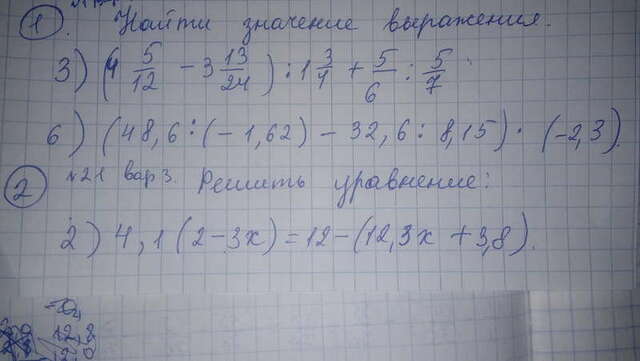 1. Найти значение выражения.
3) (4 5/12 - 3 13/24) : 1 3/4 + 5/6 : 5/7.
6) (48,6 : (-1,62) - 32,6 : 8,15) · (-2,3).
2 №21 вар 3. Решить уравнение:
2) 4,1(2-3x) = 12-(12,3x + 3,8).